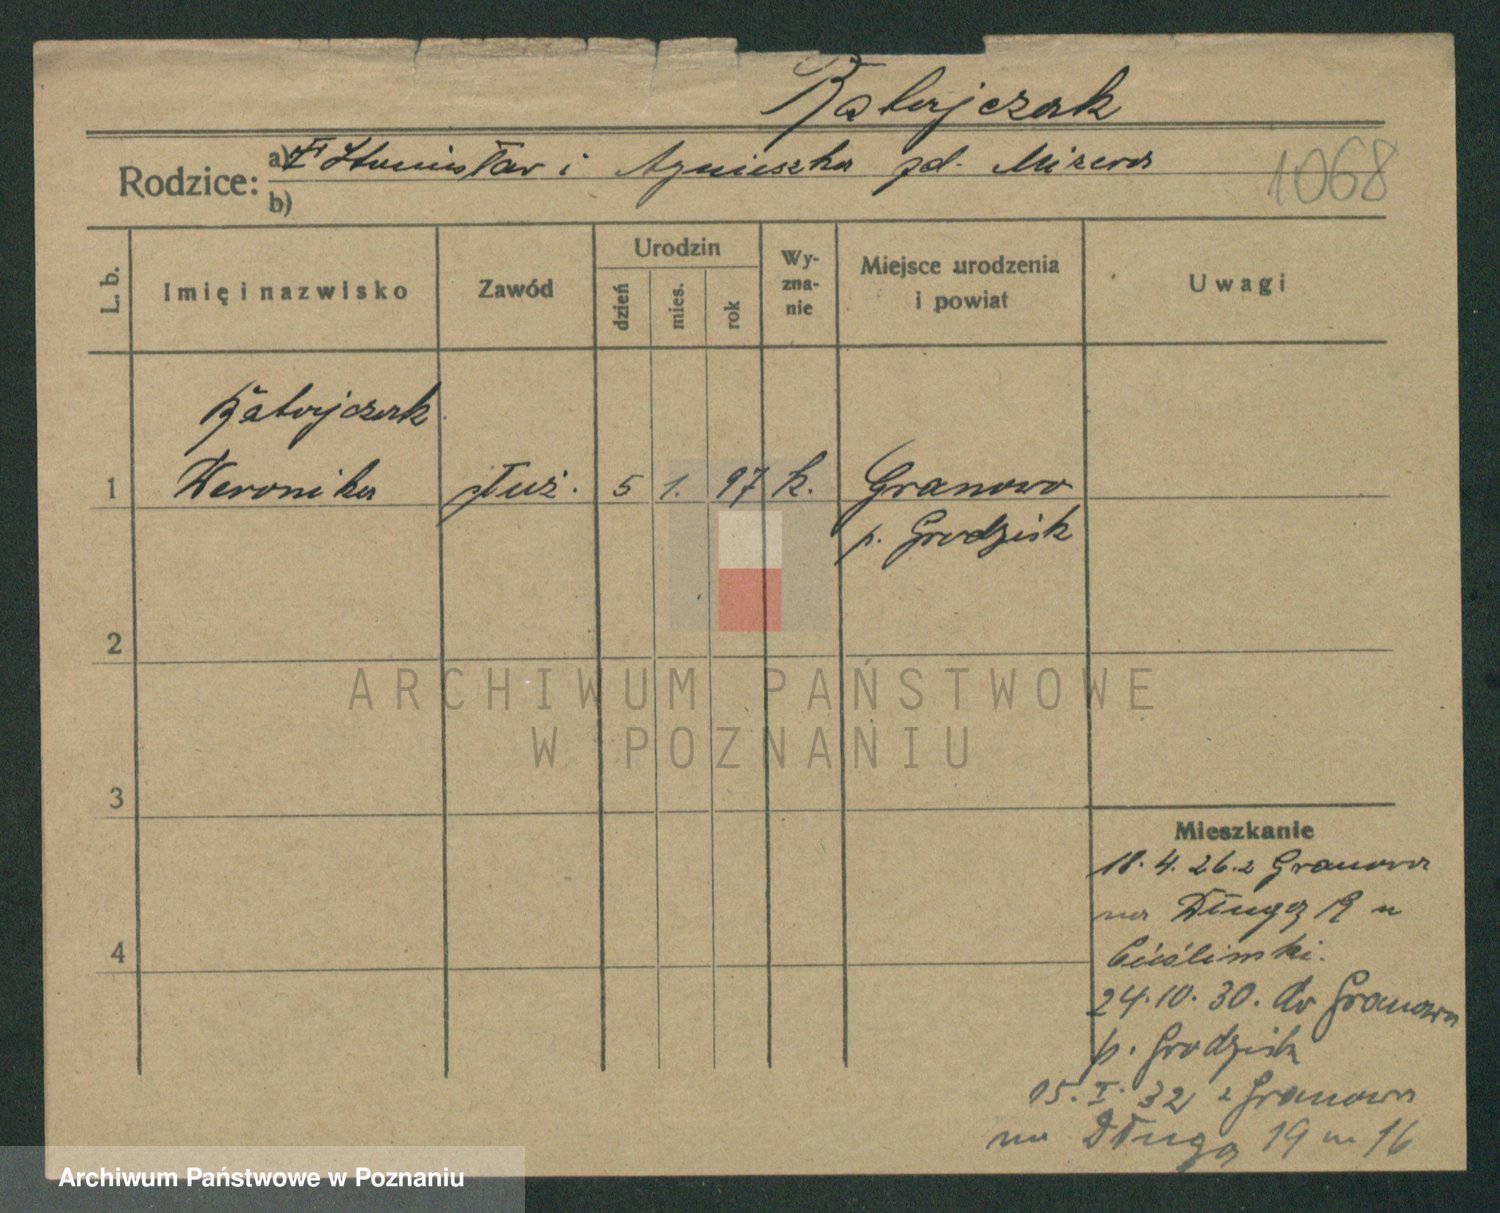 Ratajczak
Rodzice:
a) Stanisław i Agnieszka zd. Mizera
b)
1068
L. b.
Imię i nazwisko
Zawód
Urodzin
dzień
mies.
rok
Wy-
zna-
nie
Miejsce urodzenia
i powiat
Uwagi
Ratajczak
1 Weronika służ. 5 1. 97 k. Granowo
p. Grodzisk
2
ARCHIWUM PAŃSTWOWE
W POZNANIU
3
Mieszkanie
18.4.26. z Granowa
na Długą 19 u
Cieślinski.
4
24.10.30. do Granowa
p. Grodzisk
15.I.32 z Granowa
na Długą 19 m 16
Archiwum Państwowe w Poznaniu